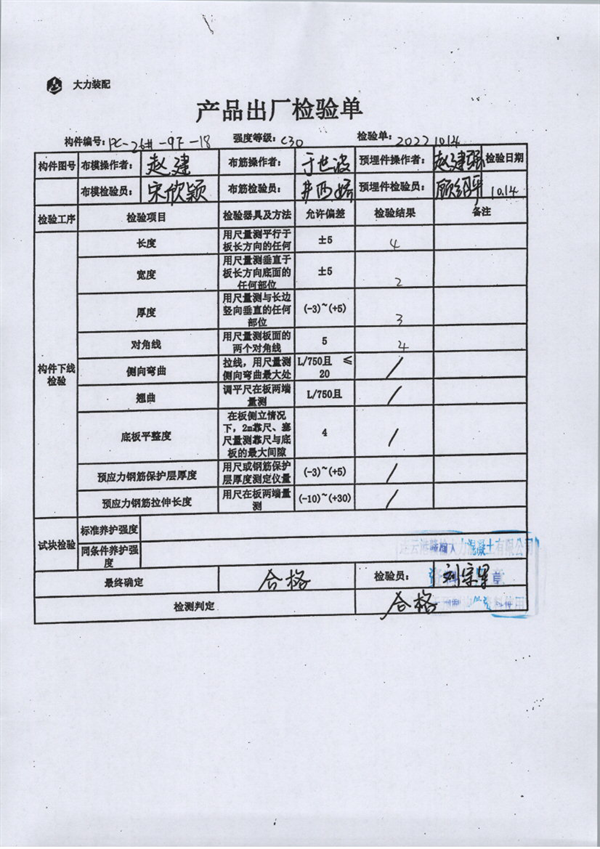 大力装配
产品出厂检验单
构件编号: PC-26#-9F-18 强度等级: C30 检验单: 20221014
构件图号 布模操作者: 赵建 布筋操作者: 于世波 预埋件操作者: 赵建强 检验日期
布模检验员: 宋欣颖 布筋检验员: 预埋件检验员: 10.14
检验工序 检验项目 检验器具及方法 允许偏差 检验结果 备注
构件下线检验
长度 用尺量测平行于板长方向的任何 ±5 4
宽度 用尺量测垂直于板长方向底面的任何部位 ±5 2
厚度 用尺量测与长边竖向垂直的任何部位 (-3)~(+5) 3
对角线 用尺量测板面的两个对角线 5 4
侧向弯曲 拉线，用尺量测侧向弯曲最大处 L/750且 ≤20 /
翘曲 调平尺在板两端量测 L/750且 /
底板平整度 在板侧立情况下，2m靠尺、塞尺量测靠尺与底板的最大间隙 4 /
预应力钢筋保护层厚度 用尺或钢筋保护层厚度测定仪量 (-3)~(+5) /
预应力钢筋拉伸长度 用尺在板两端量测 (-10)~(+30) /
试块检验 标准养护强度
同条件养护强度
最终确定 合格 检验员:
检测判定 合格